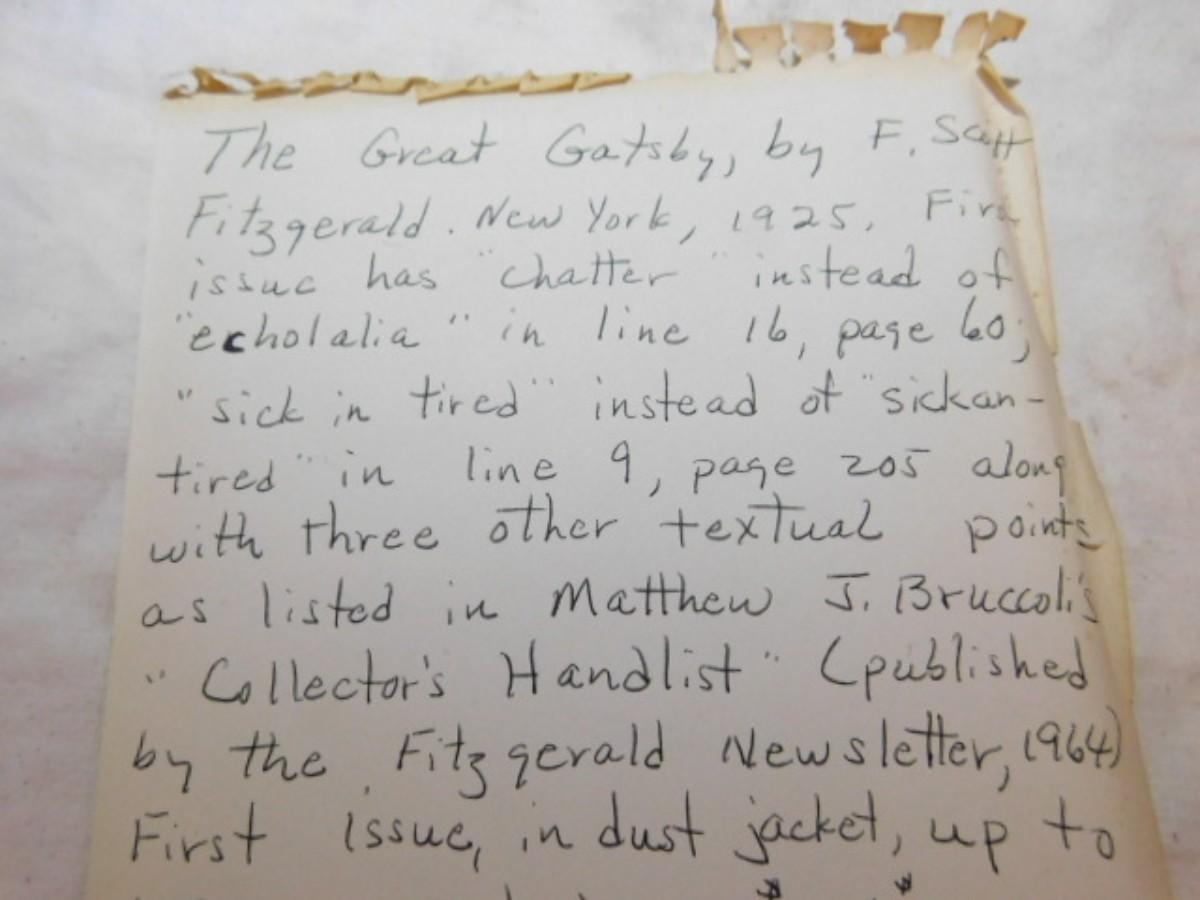 The Great Gatsby, by F. Scott
Fitzgerald. New York, 1925. First
issue has "chatter" instead of
"echolalia" in line 16, page 60;
"sick in tired" instead of "sickan-
tired" in line 9, page 205 along
with three other textual points
as listed in Matthew J. Bruccoli's
"Collector's Handlist" (published
by the Fitzgerald Newsletter, 1964)
First issue, in dust jacket, up to